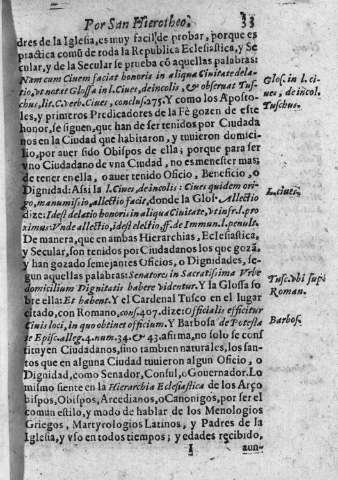 Por San Hierotheo. 33
dres de la Iglesia, es muy facil de probar, porque es
practica comũ de toda la Republica Eclesiastica, y Se
cular, y de la Secular se prueba cõ aquellas palabras:
Nam cum Civem faciat honoris in aliqua Civitate dela-
tio, ut notat Glossa in l. Cives, de incolis, & observat Tus-
chus, lit. C. verb. Cives, conclus. 275. Y como los Aposto-
les, y primeros Predicadores de la Fè gozen de este
honor, se siguen, que han de ser tenidos por Ciudada
nos en la Ciudad que habitaron, y tuuieron domici-
lio, por auer sido Obispos de ella; porque para ser
vno Ciudadano de vna Ciudad, no es menester mas;
de tener en ella, o auer tenido Oficio, Beneficio, o
Dignidad: Assi la l. Cives, de incolis: Cives quidem ori-
go, manumissio, allectio facit, donde la Glos. Allectio
dize: Idest delatio honoris in aliqua Civitate, vt infr. l. pro
ximus: Vnde allectio, idest electio, ff. de Immun. l. penult.
De manera, que en ambas Hierarchias, Eclesiastica,
y Secular, son tenidos por Ciudadanos los que gozã,
y han gozado semejantes Oficios, o Dignidades, se-
gun aquellas palabras: Senatores in Sacratissima Vrbe
domicilium Dignitatis habere videntur. Y la Glossa so
bre ella: Et habent. Y el Cardenal Tusco en el lugar
citado, con Romano, cons. 407. dize: Officialis efficitur
Civis loci, in quo obtinet officium. Y Barbosa de Potesta
te Episc. alleg. 4. num. 34. & 43. afirma, no solo se cons
tituyen Ciudadanos, sino tambien naturales, los san-
tos que en alguna Ciudad tuuieron algun Oficio, o
Dignidad, como Senador, Consul, o Governador. Lo
mismo siente en la Hierarchia Eclesiastica de los Arço
bispos, Obispos, Arcedianos, o Canonigos, por ser el
comun estilo, y modo de hablar de los Menologios
Griegos, Martyrologios Latinos, y Padres de la
Iglesia, y vso en todos tiempos; y edades recibido,
I aun-
Glos. in l. ci-
ues, de incol.
Tuschus.
L. ciues.
Tusc. vbi supr.
Roman.
Barbos.